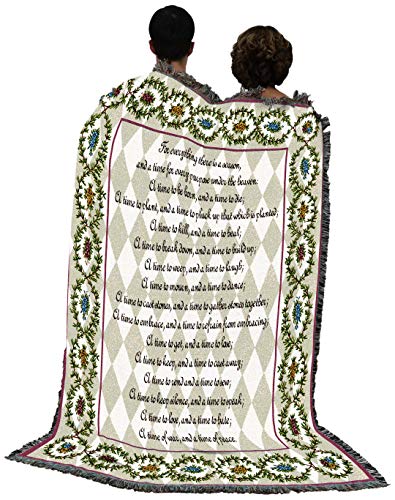 For everything there is a season,
and a time for every purpose under the heaven:
A time to be born, and a time to die;
A time to plant, and a time to pluck up that which is planted;
A time to kill, and a time to heal;
A time to break down, and a time to build up;
A time to weep, and a time to laugh;
A time to mourn, and a time to dance;
A time to cast stones, and a time to gather stones together;
A time to embrace, and a time to refrain from embracing;
A time to get, and a time to lose;
A time to keep, and a time to cast away;
A time to rend and a time to sew;
A time to keep silence, and a time to speak;
A time to love, and a time to hate;
A time of war, and a time of peace.